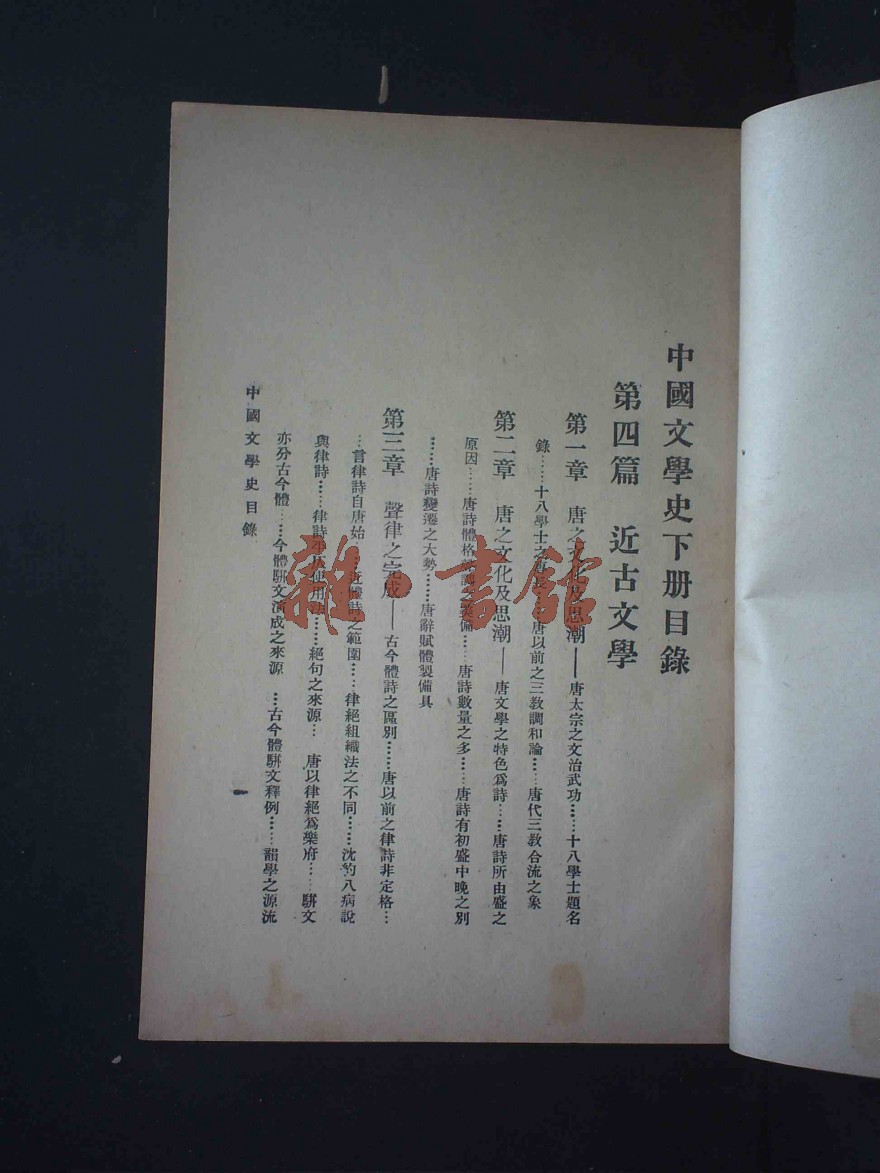 中國文學史下册目錄
第四篇　近古文學
第一章　唐之文化及思潮——唐太宗之文治武功……十八學士題名
錄……十八學士之唐……唐以前之三教調和論……唐代三教合流之象
第二章　唐之文化及思潮——唐文學之特色爲詩……唐詩所由盛之
原因……唐詩體格……備……唐詩數量之多……唐詩有初盛中晚之別
……唐詩變遷之大勢……唐辭賦體製備具
第三章　聲律之完成——古今體詩之區別……唐以前之律詩非定格…
…言律詩自唐始……近體詩之範圍……律絕組織法之不同……沈約八病說
與律詩……律詩使用法……絕句之來源…　唐以律絕爲樂府……駢文
亦分古今體……今體駢文演成之來源　…古今體駢文釋例……韻學之源流
中國文學史目錄
雜·書館